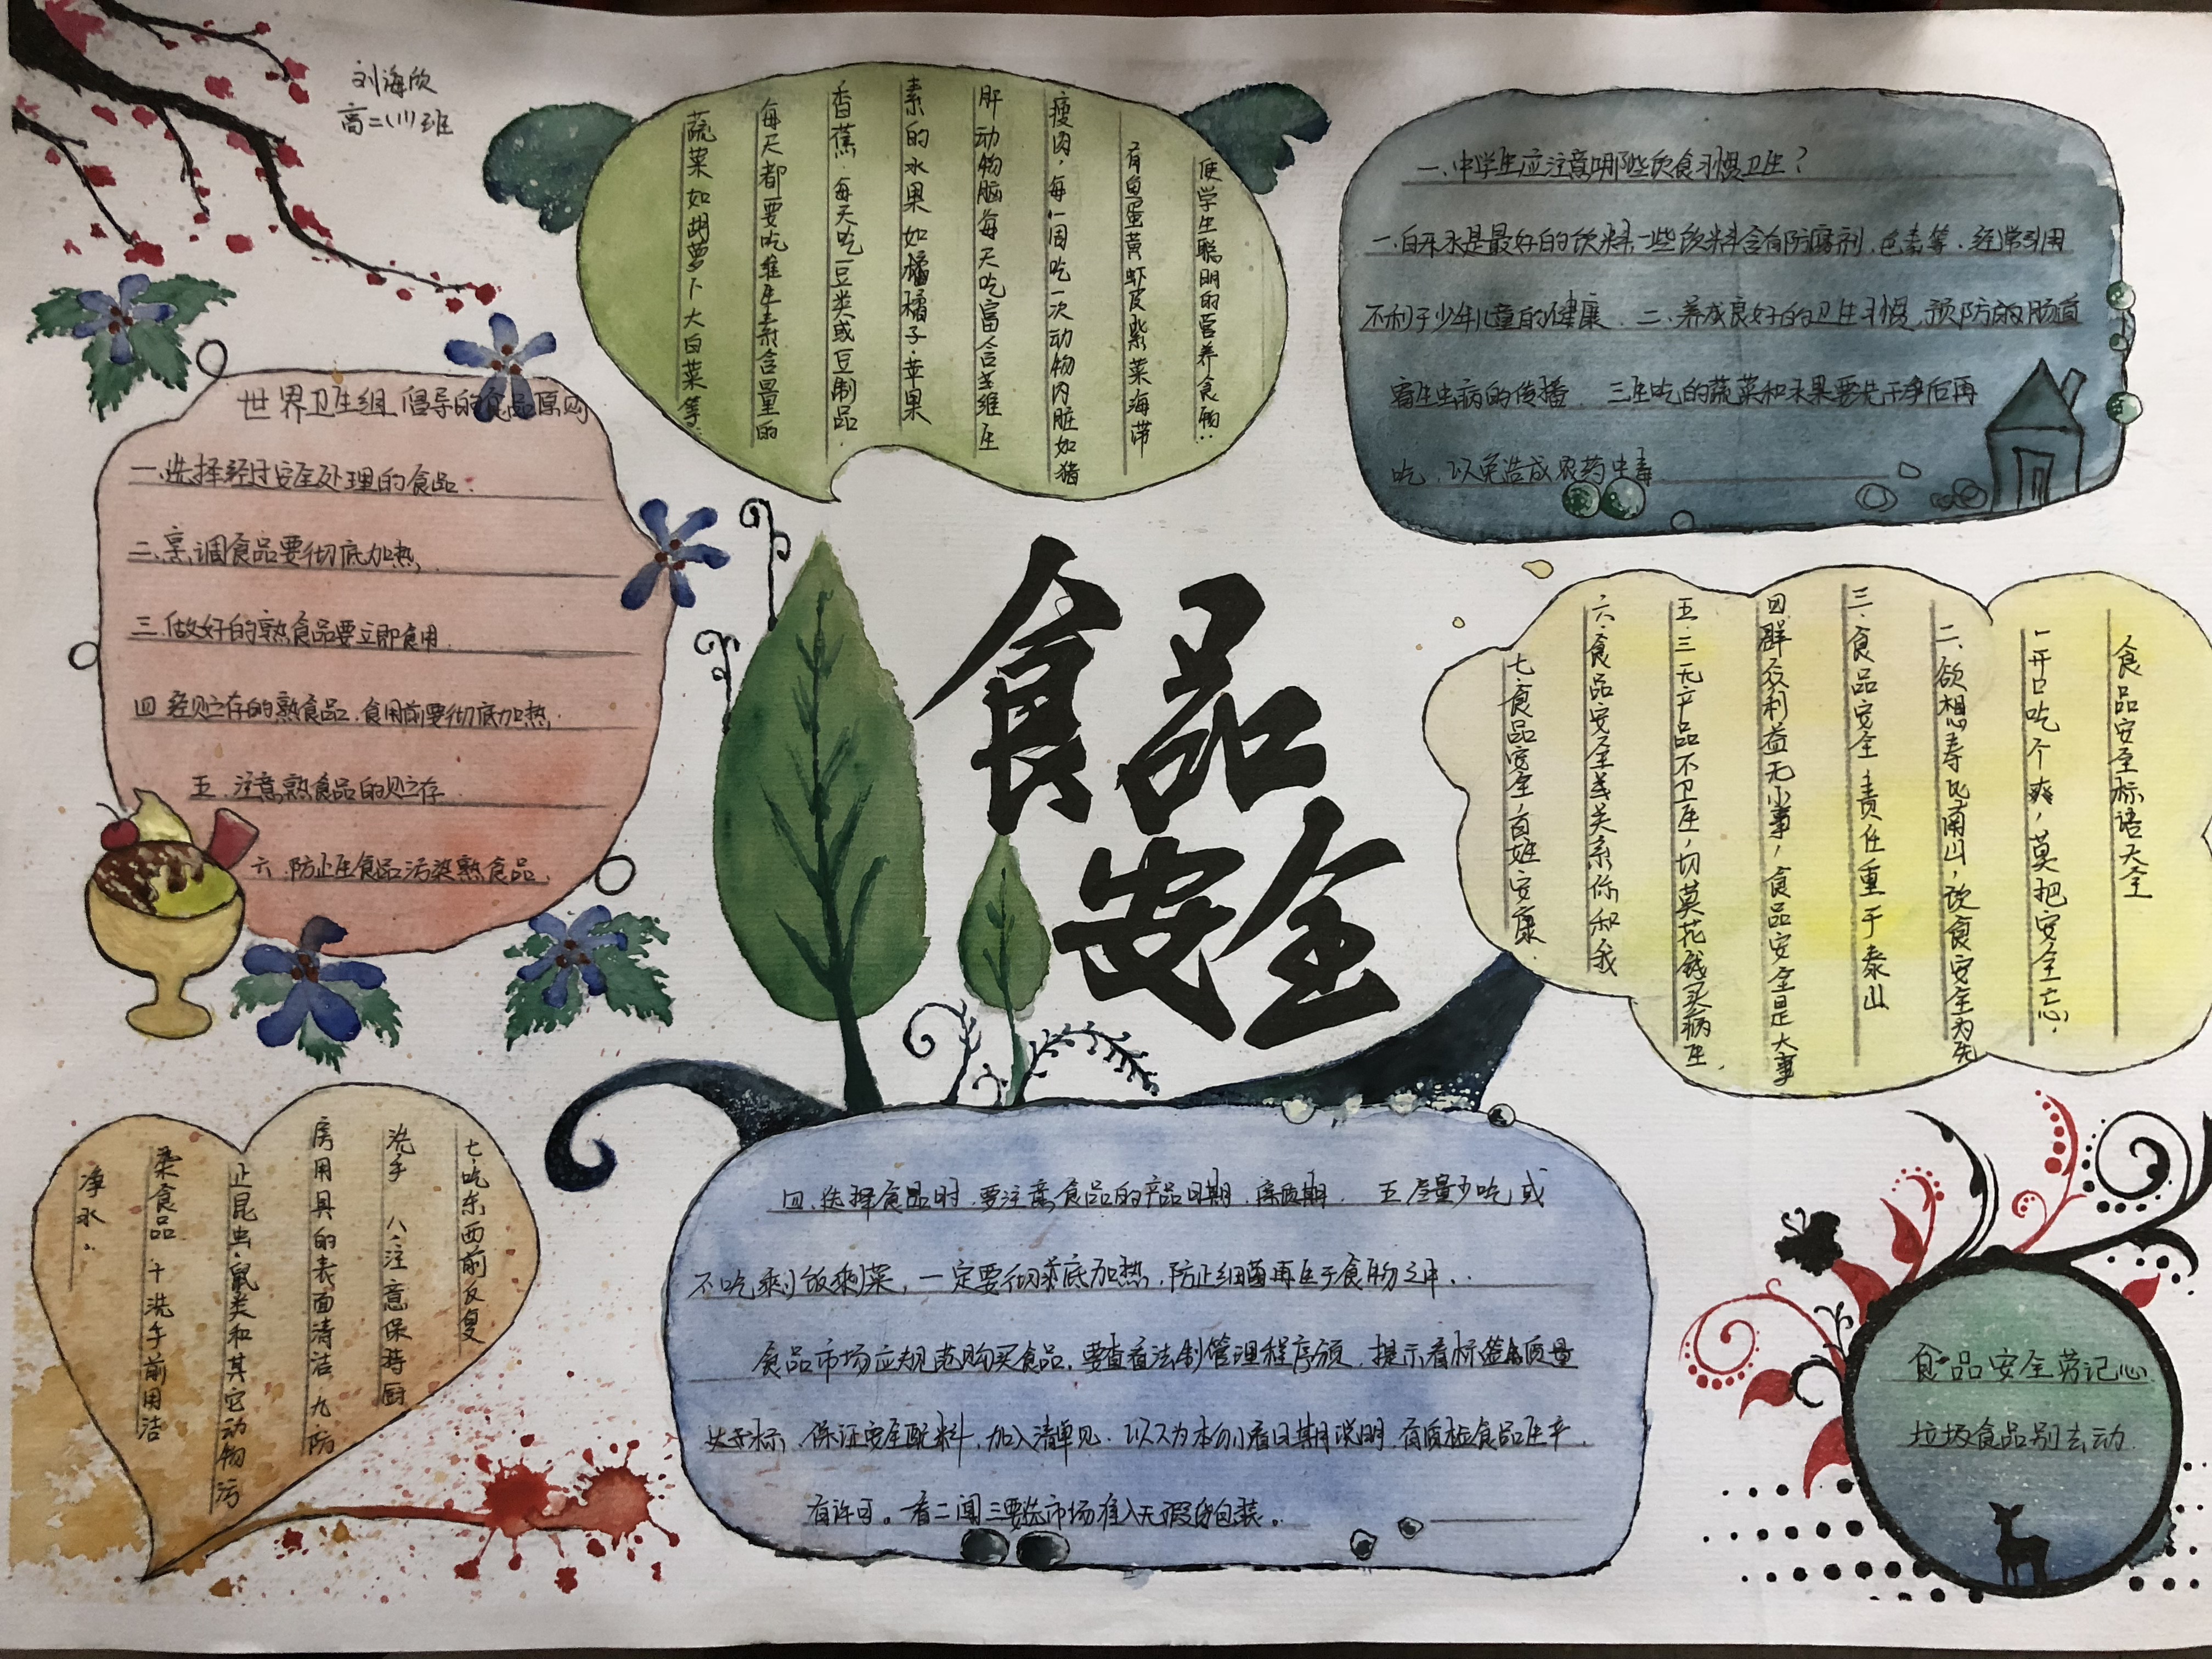 刘海欣
高二(11)班
使学生聪明的营养食物:
有鱼蛋黄虾皮紫菜海带
瘦肉,每一周吃一次动物内脏如猪
肝动物脑每天吃富含维生
素的水果如橘橘子.苹果
香蕉.每天吃豆类或豆制品.
每天都要吃维生素含量的
蔬菜如胡萝卜大白菜等.
一.中学生应注意哪些饮食习惯卫生?
一.白开水是最好的饮料一些饮料含有防腐剂.色素等.经常引用
不利于少年儿童的健康.二.养成良好的卫生习惯,预防的肠道
寄生虫病的传播.三生吃的蔬菜和水果要洗干净后再
吃.以免造成农药中毒
世界卫生组倡导的食品原则
一.选择经过安全处理的食品.
二.烹调食品要彻底加热.
三.做好的熟食品要立即食用.
四经贮存的熟食品.食用前要彻底加热.
五.注意熟食品的贮存.
六.防止生食品污染熟食品.
食品
安全
食品安全标语大全
一开口吃个爽,莫把安全忘.
二.欲想寿比南山,饮食安全为先
三.食品安全责任重于泰山
四群众利益无小事,食品安全是大事
五.三无产品不卫生,切莫花钱买病生.
六.食品安全关系你和我
七.食品安全,百姓安康.
七.吃东西前反复
洗手 八.注意保持厨
房用具的表面清洁 九.防
止昆虫.鼠类和其它动物污
染食品 十洗手前用洁
净水..
四.选择食品时.要注意食品的产品日期.保质期. 五.尽量少吃或
不吃剩饭剩菜,一定要彻底加热.防止细菌再生于食物之中..
食品市场应规范购买食品.要查看法制管理程序颁.提示看标签质量
达标.保证安全配料.加入清单见.以不为本分小看日期说明.有质检食品生产.
有许可。看二闻三要选市场准入无瑕疵包装。
食品安全劳记心
垃圾食品别去动.